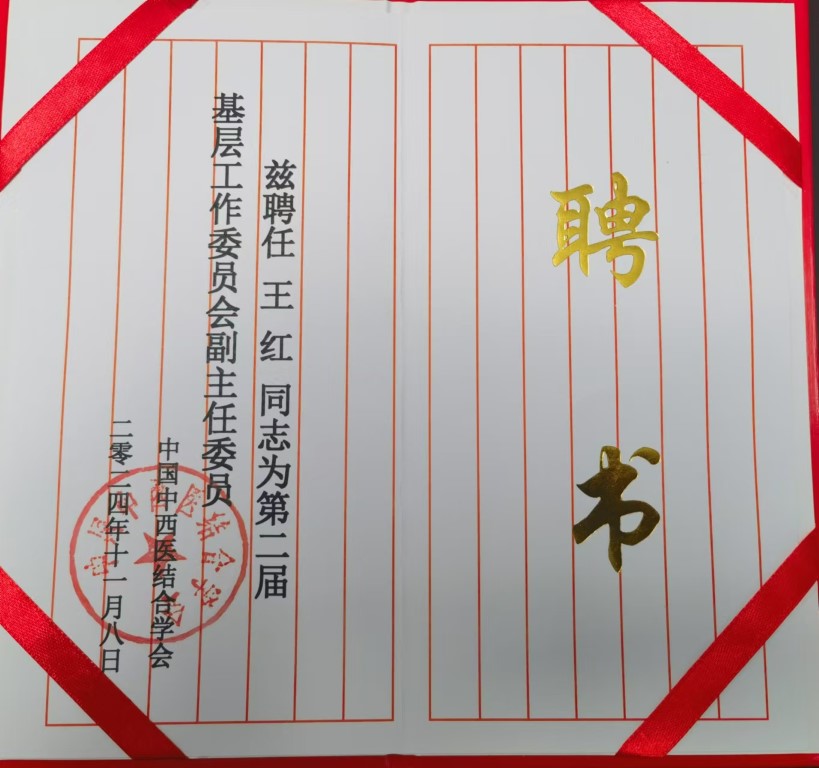 聘书
兹聘任 王 红 同志为第二届
基层工作委员会副主任委员
中国中西医结合学会
二零二四年十一月八日
中国中西医结合学会